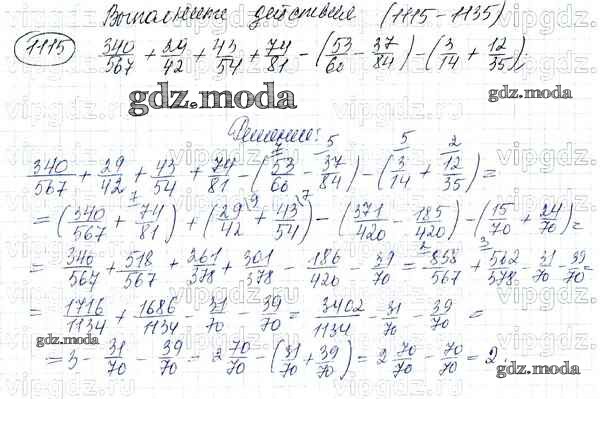 Выполните действия (1115-1135)
1115 340/567 + 29/42 + 43/54 + 74/81 - (53/60 - 37/84) - (3/14 + 12/35)
gdz.moda
Решение:
340/567 + 29/42 + 43/54 + 74/81 - (53/60 - 37/84) - (3/14 + 12/35) =
= (340/567 + 74/81) + (29/42 + 43/54) - (371/420 - 185/420) - (15/70 + 24/70) =
= 340/567 + 518/567 + 261/378 + 301/378 - 186/420 - 39/70 = 858/567 + 562/378 - 31/70 - 39/70 =
= 1716/1134 + 1686/1134 - 31/70 - 39/70 = 3402/1134 - 31/70 - 39/70 =
gdz.moda
= 3 - 31/70 - 39/70 = 2 70/70 - (31/70 + 39/70) = 2 70/70 - 70/70 = 2
gdz.moda